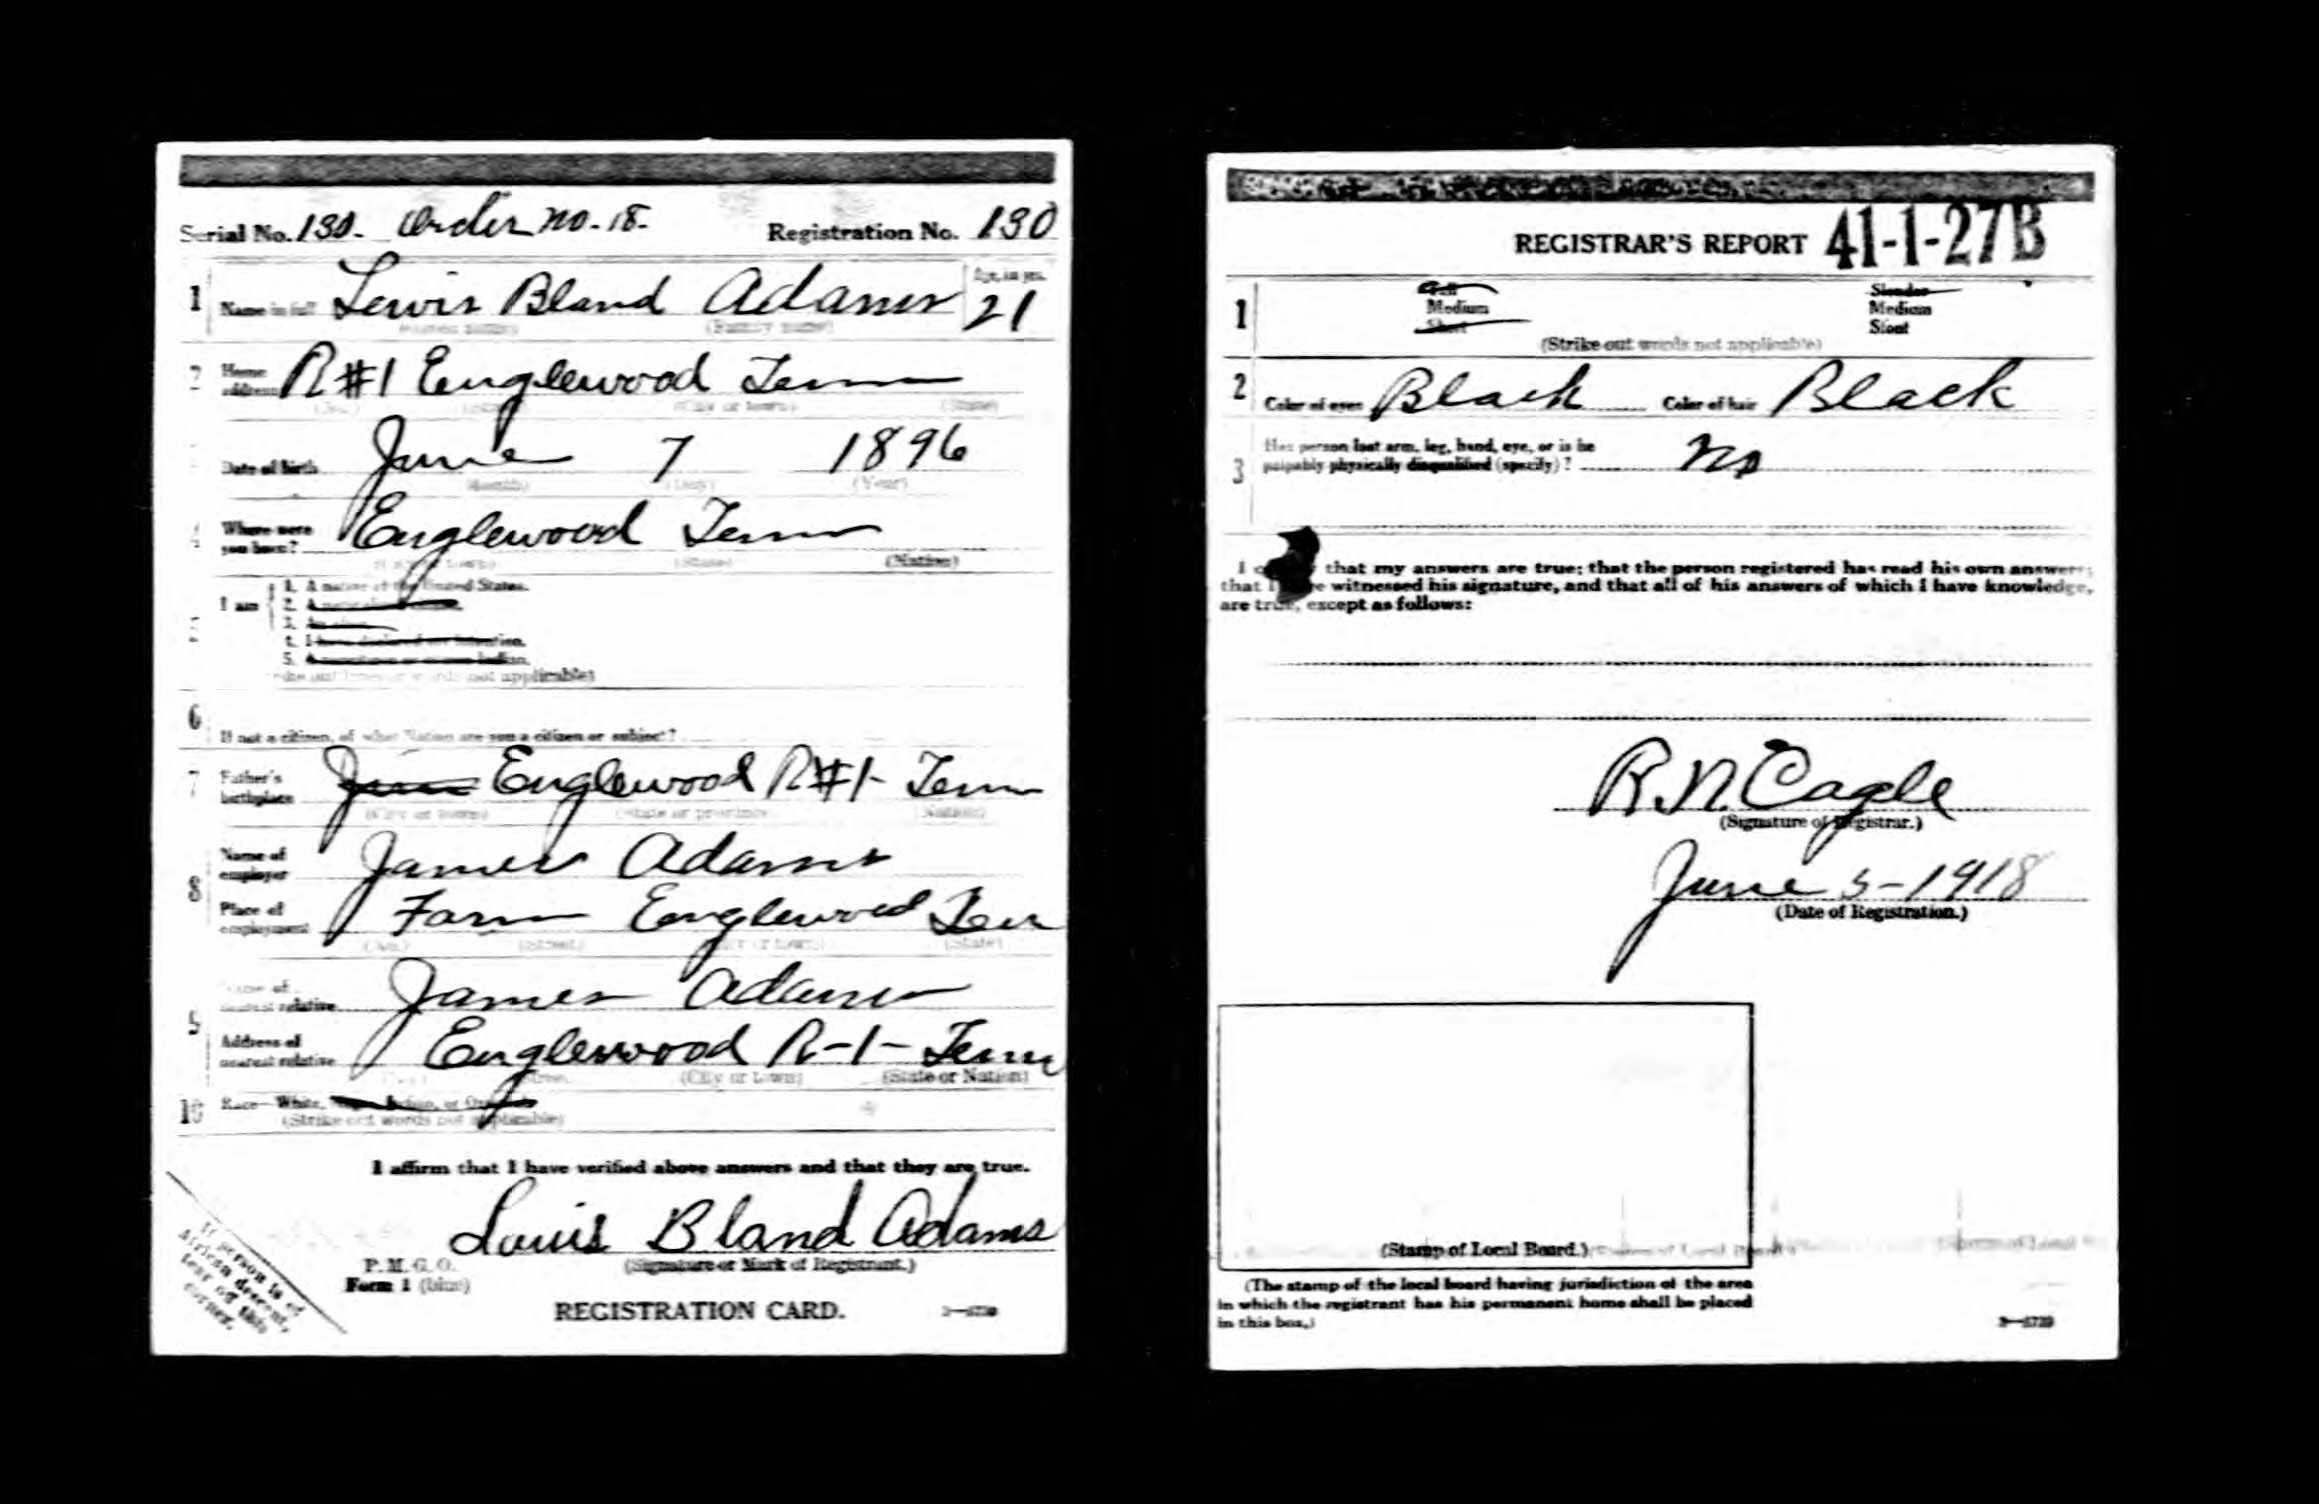 Serial No. 130. Order no. 18. Registration No. 130
1 Name in full Lewis Bland Adams Age, in yrs. 21
(Given name) (Family name)
2 Home address R#1 Englewood Tenn
(No.) (Street) (City or town) (State)
Date of birth June 7 1896
(Month) (Day) (Year)
4 Where were you born? Englewood Tenn
(City or town) (State) (Nation)
5 I am
1. A native of the United States.
2. A
3. An alien.
4. I have declared my intention.
5. A noncitizen or citizen Indian.
(Strike out lines or words not applicable)
6 If not a citizen, of what Nation are you a citizen or subject?
7 Father's birthplace Englewood R#1- Tenn
(City or town) (State or province) (Nation)
8 Name of employer James Adams
Place of employment Farm Englewood Ten
(No.) (Street) (City or town) (State)
9 Name of nearest relative James Adams
Address of nearest relative Englewood R-1- Tenn
(No.) (Street) (City or town) (State or Nation)
10 Race—White, Negro, Indian, or Oriental
(Strike out words not applicable)
I affirm that I have verified above answers and that they are true.
Louis Bland Adams
P. M. G. O. (Signature or Mark of Registrant.)
Form 1 (blue)
REGISTRATION CARD.
If person is of
African descent,
tear off this
corner.
REGISTRAR'S REPORT 41-1-27B
1 Tall Slender
Medium Medium
Short Stout
(Strike out words not applicable)
2 Color of eyes Black Color of hair Black
3 Has person lost arm, leg, hand, eye, or is he
palpably physically disqualified (specify)? No
I that my answers are true; that the person registered has read his own answers;
that I witnessed his signature, and that all of his answers of which I have knowledge,
are true, except as follows:
R.N. Cagle
(Signature of Registrar.)
June 5-1918
(Date of Registration.)
(Stamp of Local Board.)
(The stamp of the local board having jurisdiction of the area
in which the registrant has his permanent home shall be placed
in this box.)